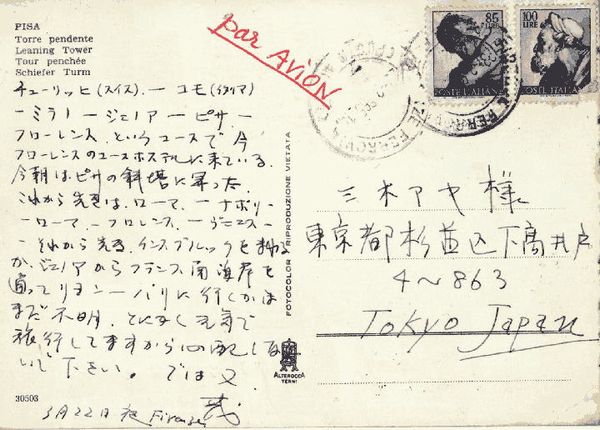 PISA
Torre pendente
Leaning Tower
Tour penchée
Schiefer Turm
par AVION
85
LIRE
POSTE ITALIANE
100
LIRE
POSTE ITALIANE
チューリッヒ(スイス).ーコモ(イタリア)
ーミラノージェノアーピサー
フローレンス.というコースで今
フローレンスのユースホステルに来ている.
今朝はピサの斜塔に寄った.
これから先きは.ローマ.ーナポリー
ーローマ.ーフローレンス.ーヴェニスー
ーそれから先き.インスブルックを
か.ジェノアからフランス南海岸を
通ってリヨンーパリに行くかは
まだ不明.とにかく元気で
旅行してますから心配しない
いで下さい。では又.
3月22日夜 Firenze 茂
三木アヤ様
東京都杉並区下高井戸
4~863
Tokyo Japan
FOTOCOLOR RIPRODUZIONE VIETATA
ALTEROCCA
TERNI
30503